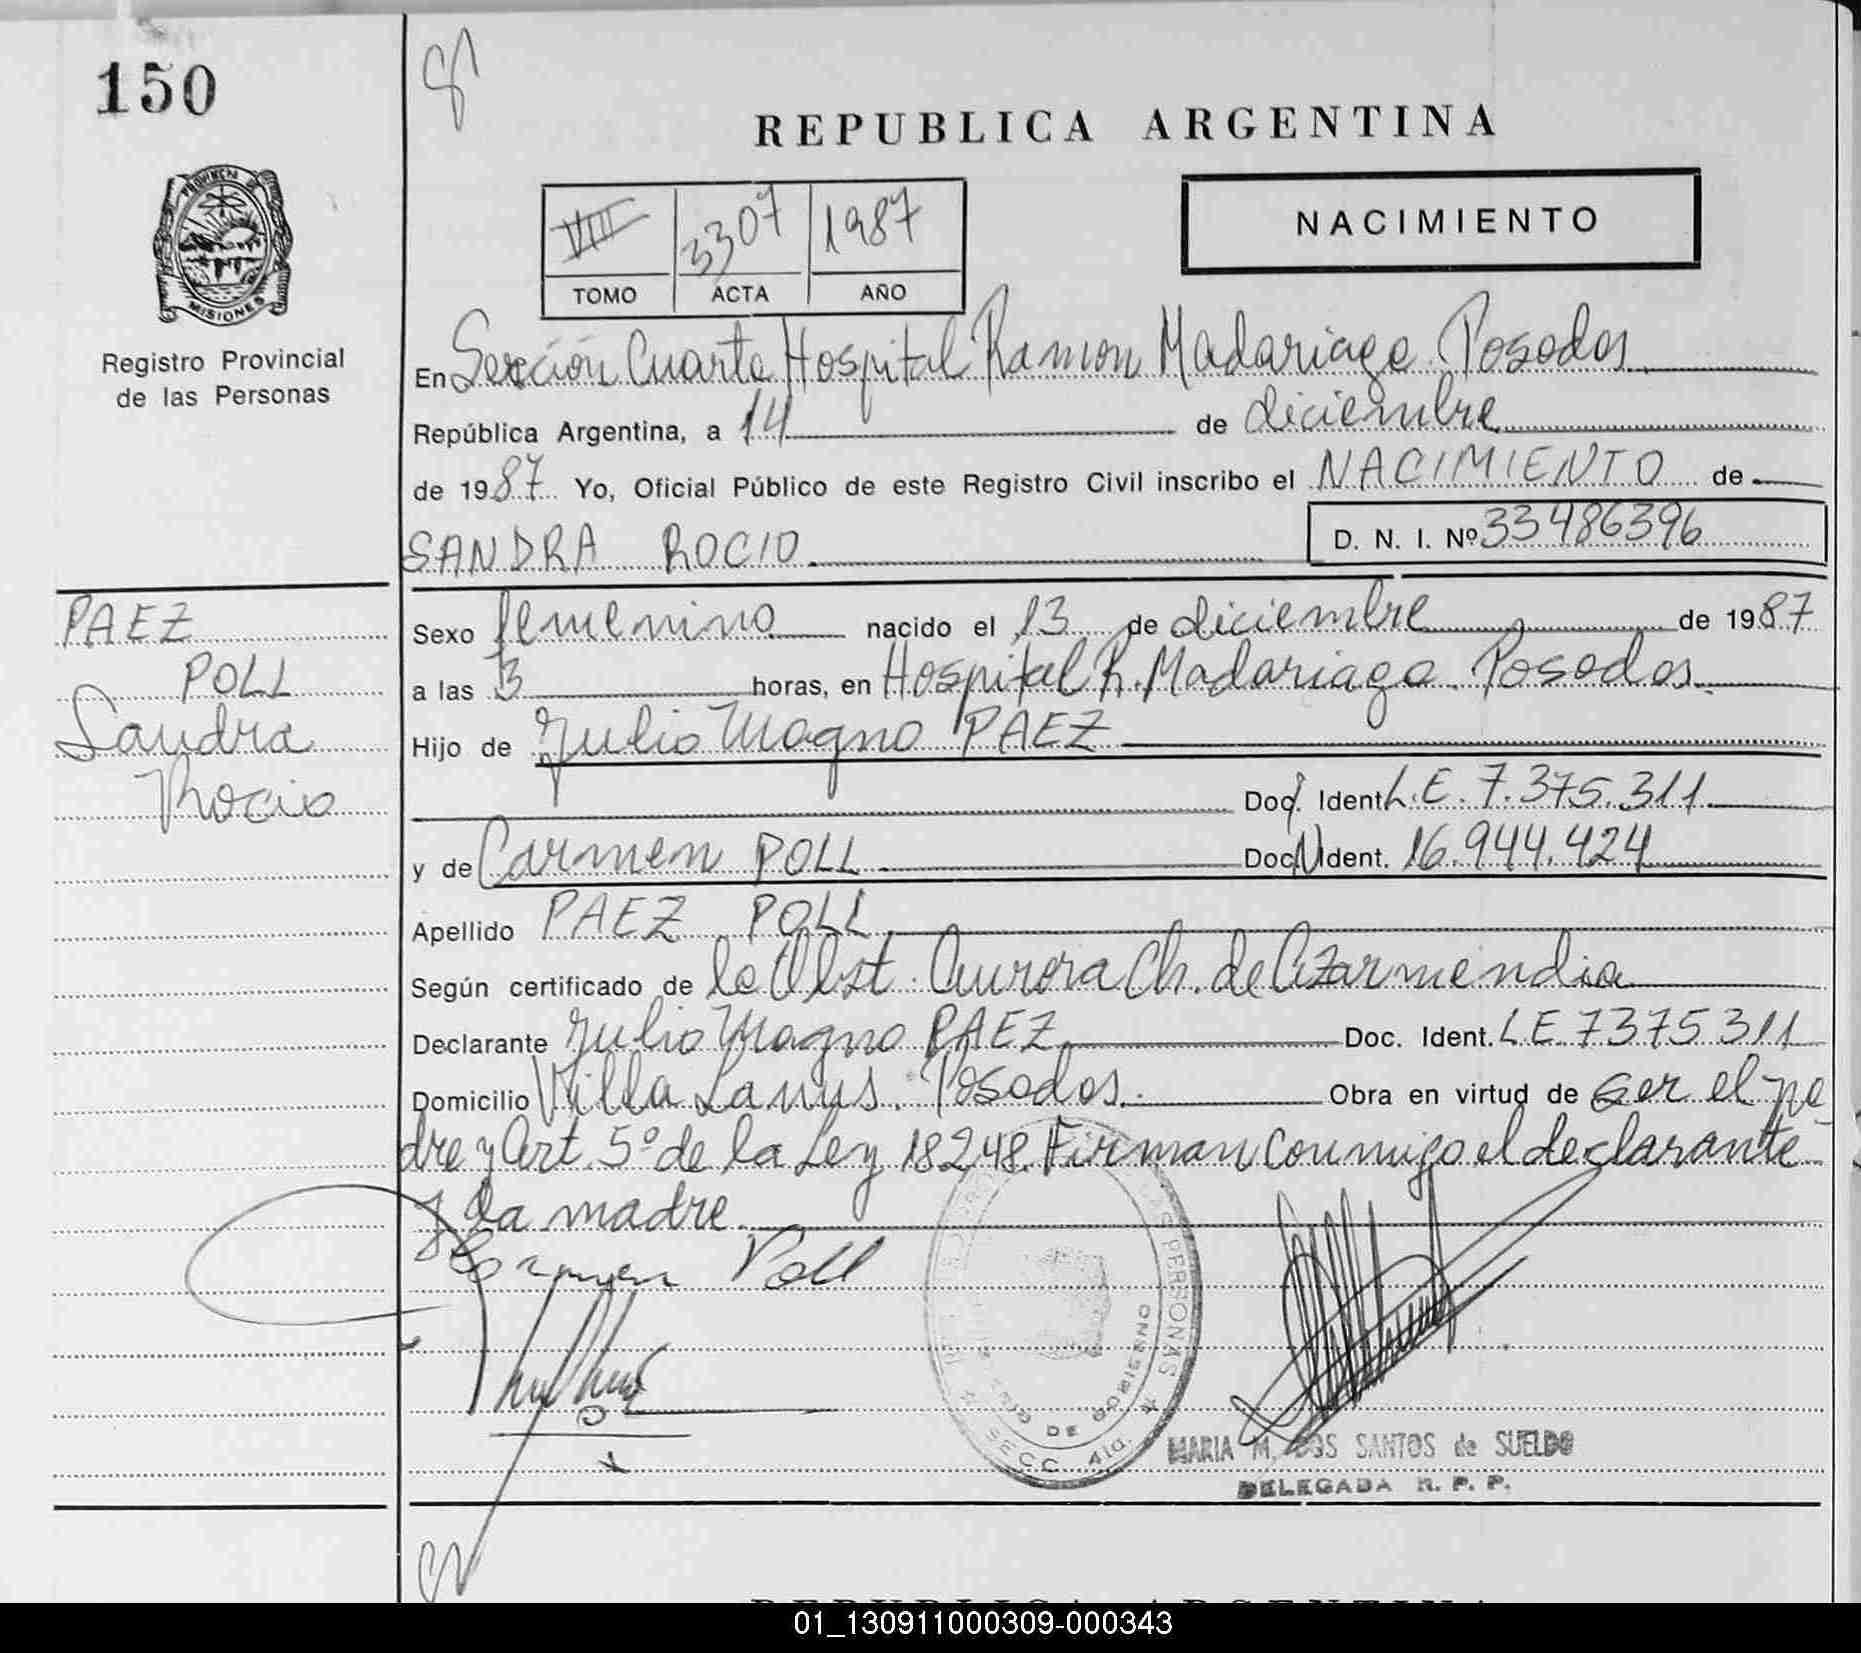 150
REPUBLICA ARGENTINA
PROVINCIA DE
MISIONES
Registro Provincial
de las Personas
VIII 3307 1987
TOMO ACTA AÑO
NACIMIENTO
En Sección Cuarta Hospital Ramon Madariaga Posadas
República Argentina, a 14 de diciembre
de 1987 Yo, Oficial Público de este Registro Civil inscribo el NACIMIENTO de
SANDRA ROCIO D. N. I. Nº 33486396
PAEZ
POLL
Sandra
Rocio
Sexo femenino nacido el 13 de diciembre de 1987
a las 3 horas, en Hospital R. Madariaga Posadas.
Hijo de Julio Magno PAEZ
Doc. Ident L.E. 7.375.311
y de Carmen POLL Doc. Ident. 16.944.424
Apellido PAEZ POLL
Según certificado de la Obst. Aurora Ch. de Azarmendia
Declarante Julio Magno PAEZ Doc. Ident. L.E. 7375311
Domicilio Villa Lanus. Posadas. Obra en virtud de ser el pa
dre y Art. 5º de la Ley 18248. Firman conmigo el declarante
y la madre.
Carmen Poll
PERSONAS
SECC. 4ta.
MARIA M. DOS SANTOS de SUELDO
DELEGADA R. P. P.
REPUBLICA ARGENTINA
01_130911000309-000343